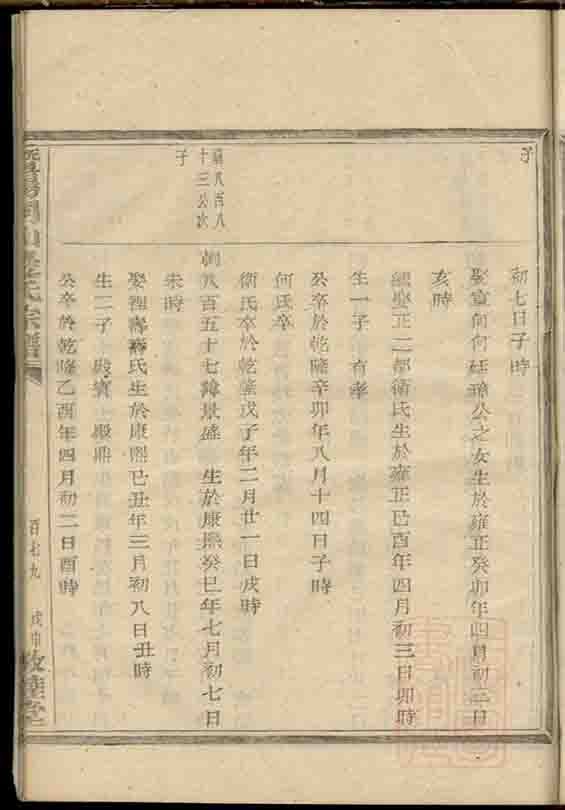 子
初七日子時
娶寶何何廷 公之女生於雍正癸卯年四月初三日
亥時
繼娶正二都衛氏生於雍正己酉年四月初三日卯時
生一子 有孝
公卒於乾隆辛卯年八月十四日子時
何氏卒
衛氏卒於乾隆戊子年二月廿一日戌時
八百八
十三公次
子
八百五十七諱景盛 生於康熙癸巳年七月初七日
未時
娶裡 蔣氏生於康熙己丑年三月初八日丑時
生二子 殿賓 殿鼎
公卒於乾隆乙酉年四月初二日酉時
暨陽 山 氏宗譜
百七九
戊申
敘倫堂